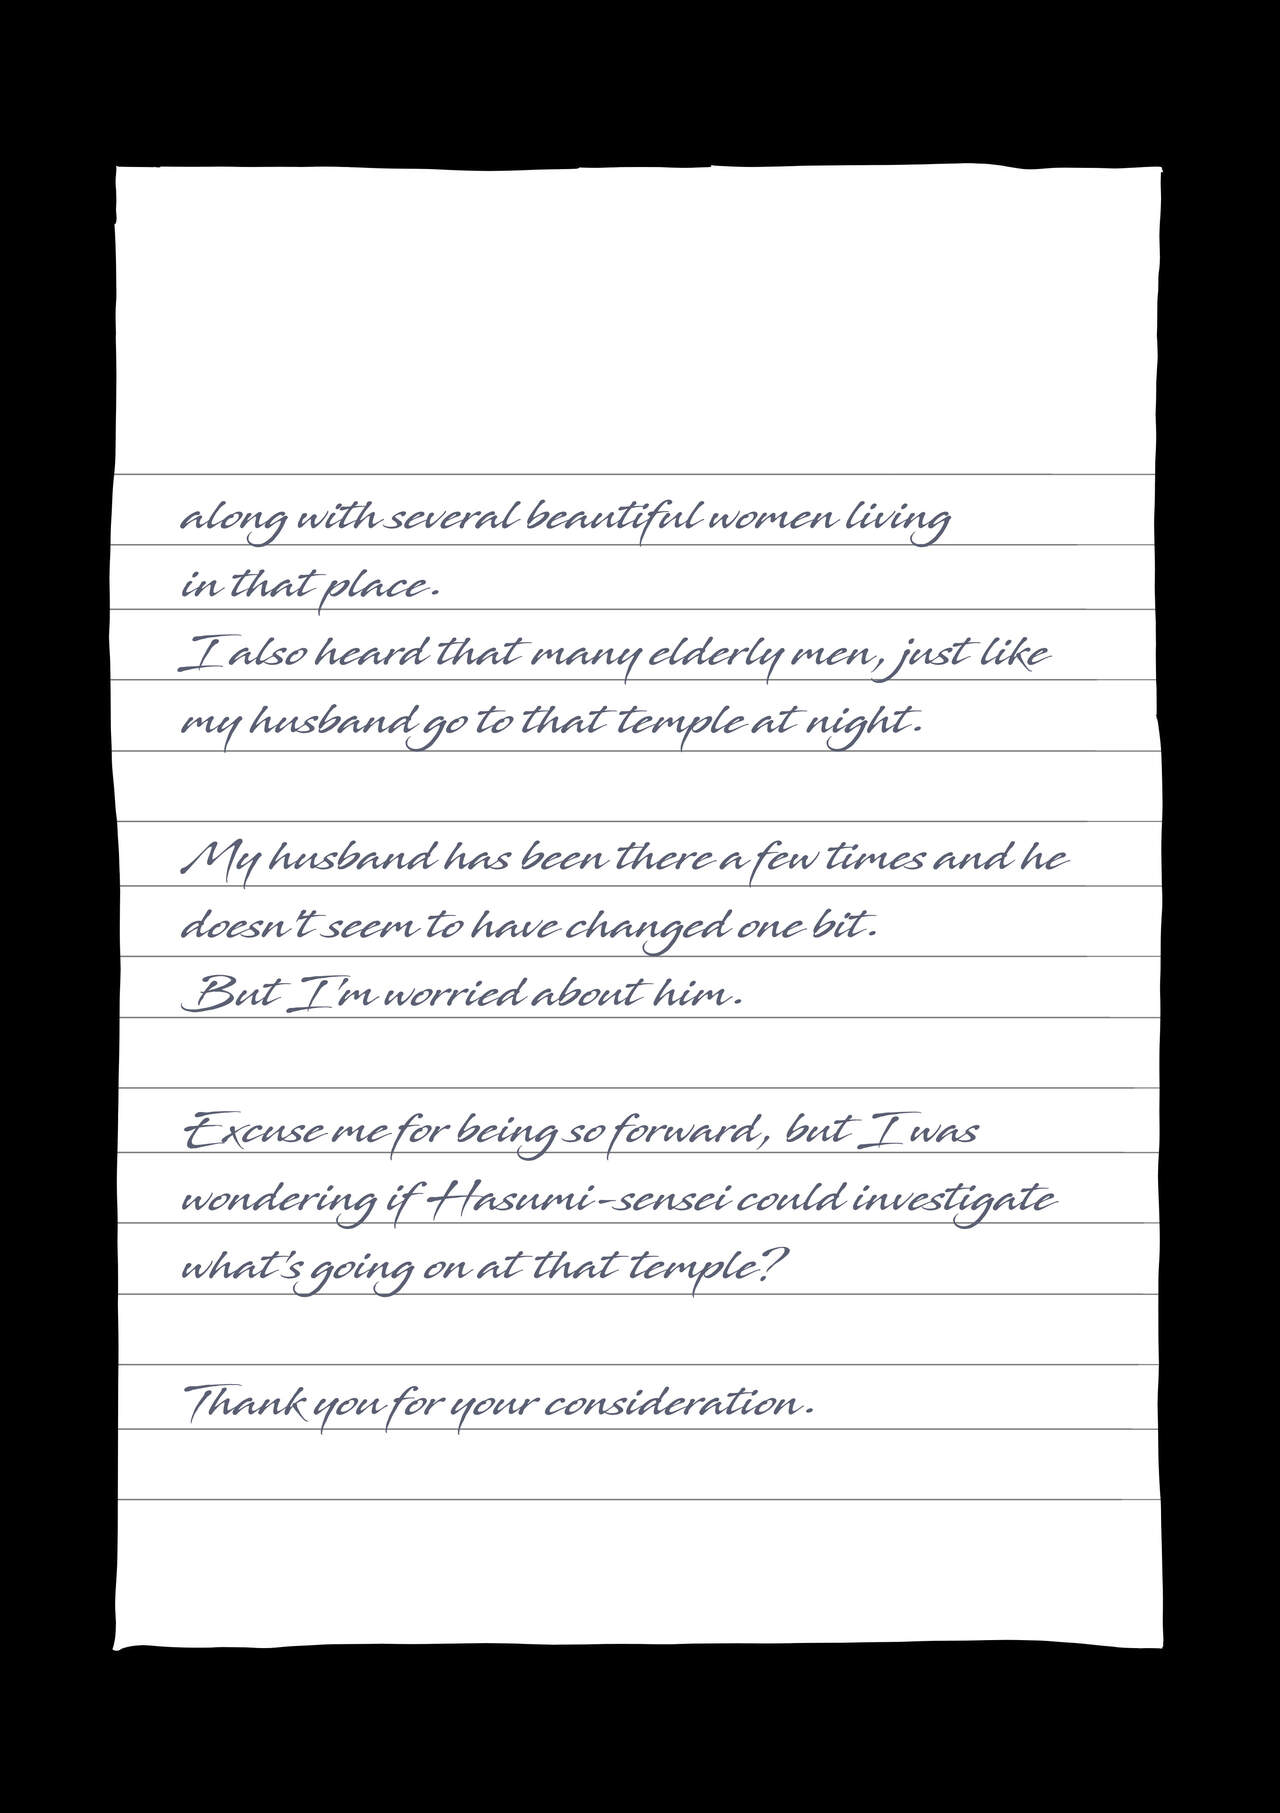 along with several beautiful women living
in that place.
I also heard that many elderly men, just like
my husband go to that temple at night.
My husband has been there a few times and he
doesn't seem to have changed one bit.
But I'm worried about him.
Excuse me for being so forward, but I was
wondering if Hasumi-sensei could investigate
what's going on at that temple?
Thank you for your consideration.